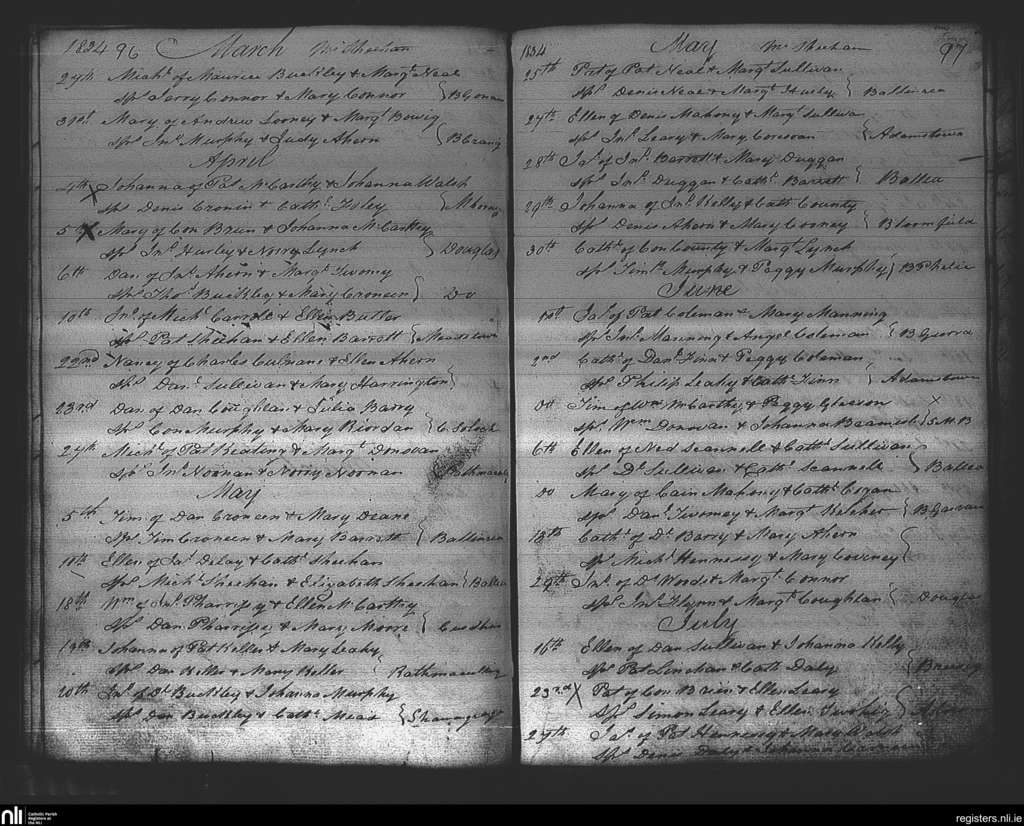 1834 96 March Mr Sheehan
27th Michl of Maurice Buckley & Margt Neal
Sprs Jerry Connor & Mary Connor
31st Mary of Andrew Looney & Margt Bowig
Sprs Jno Murphy & Judy Ahern { BCraig
April
4th X Johanna of Pat McCarthy & Johanna Walsh
Sprs Denis Cronin & Cathe Foley
5th X Mary of Con Brien & Johanna McCarthy
Sprs Jno Hurley & Norry Lynch } Douglas
6th Dan of Jno Ahern & Margt Twomey
Sprs Thos Buckley & Mary Croneen { Do
19th Jno of Michl Carroll & Ellen Butler
Sprs Pat Sheehan & Ellen Barrett {
22nd Nancy of Charles Culnane & Ellen Ahern
Sprs Danl Sullivan & Mary Harrington }
23rd Dan of Dan Coughlan & Julia Barry
Sprs Con Murphy & Mary Riordan {
27th Michl of Pat Keating & Margt Donovan
Sprs Jno Noonan & Norry Noonan
May
5th Tim of Dan Croneen & Mary Deane
Sprs Tim Croneen & Mary Barrett { Ballinrea
11th Ellen of Jas Delay & Cathe Sheehan
Sprs Michl Sheehan & Elizabeth Sheehan { Ballea
18th Wm of Jno Pharrissy & Ellen McCarthy
Sprs Dan Pharrissy & Mary Moore {
19th Johanna of Pat Keller & Mary Leahy
Sprs Dan Keller & Mary Keller
20th Jno of Dl Buckley & Johanna Murphy
Sprs Dan Buckley & Cathe Mead {
1834 May Mr Sheehan 97
25th Pat of Pat Neal & Margt Sullivan
Sprs Denis Neal & Margt Hurley } Ballinrea
27th Ellen of Denis Mahony & Margt Sullivan
Sprs Jno Leary & Mary Corcoran { Adamstown
28th Jas of Jno Barrett & Mary Duggan
Sprs Jno Duggan & Cathe Barrett { Ballea
29th Johanna of Jno Kelly & Cath County
Sprs Denis Ahern & Mary Cooney { Bloomfield
30th Cathe of Con County & Margt Lynch
Sprs Timth Murphy & Peggy Murphy {
June
1st Jas of Pat Coleman & Mary Manning
Sprs Jno Manning & Coleman {
2nd Cathe of Danl Finn & Peggy Coleman
Sprs Philip Leahy & Cathe Finn { Adamstown
Do Tim of Wm McCarthy & Peggy Gleeson X
Sprs Wm Donovan & Johanna Beamish { S.M.B
6th Ellen of Ned Scannell & Cathe Sullivan
Sprs Dl Sullivan & Cathe Scannell { Ballea
Do Mary of Cain Mahony & Cathe Cogan
Sprs Danl Twomey & Margt Keleher {
18th Cathe of Dl Barry & Mary Ahern
Sprs Michl Hennessy & Mary Coveney {
29th Jno of Dl Woods & Margt Connor
Sprs Jno Flynn & Margt Coughlan { Douglas
July
16th Ellen of Dan Sullivan & Johanna Kelly
Sprs Pat Linehan & Cath Daly {
23rd X Pat of Con Brien & Ellen Leary
Sprs Simon Leary & Ellen Twohig {
27th Jas of Pat Hennessy & Mary Walsh
Sprs Denis Daly & Johanna
nli Catholic Parish Registers at the NLI
registers.nli.ie